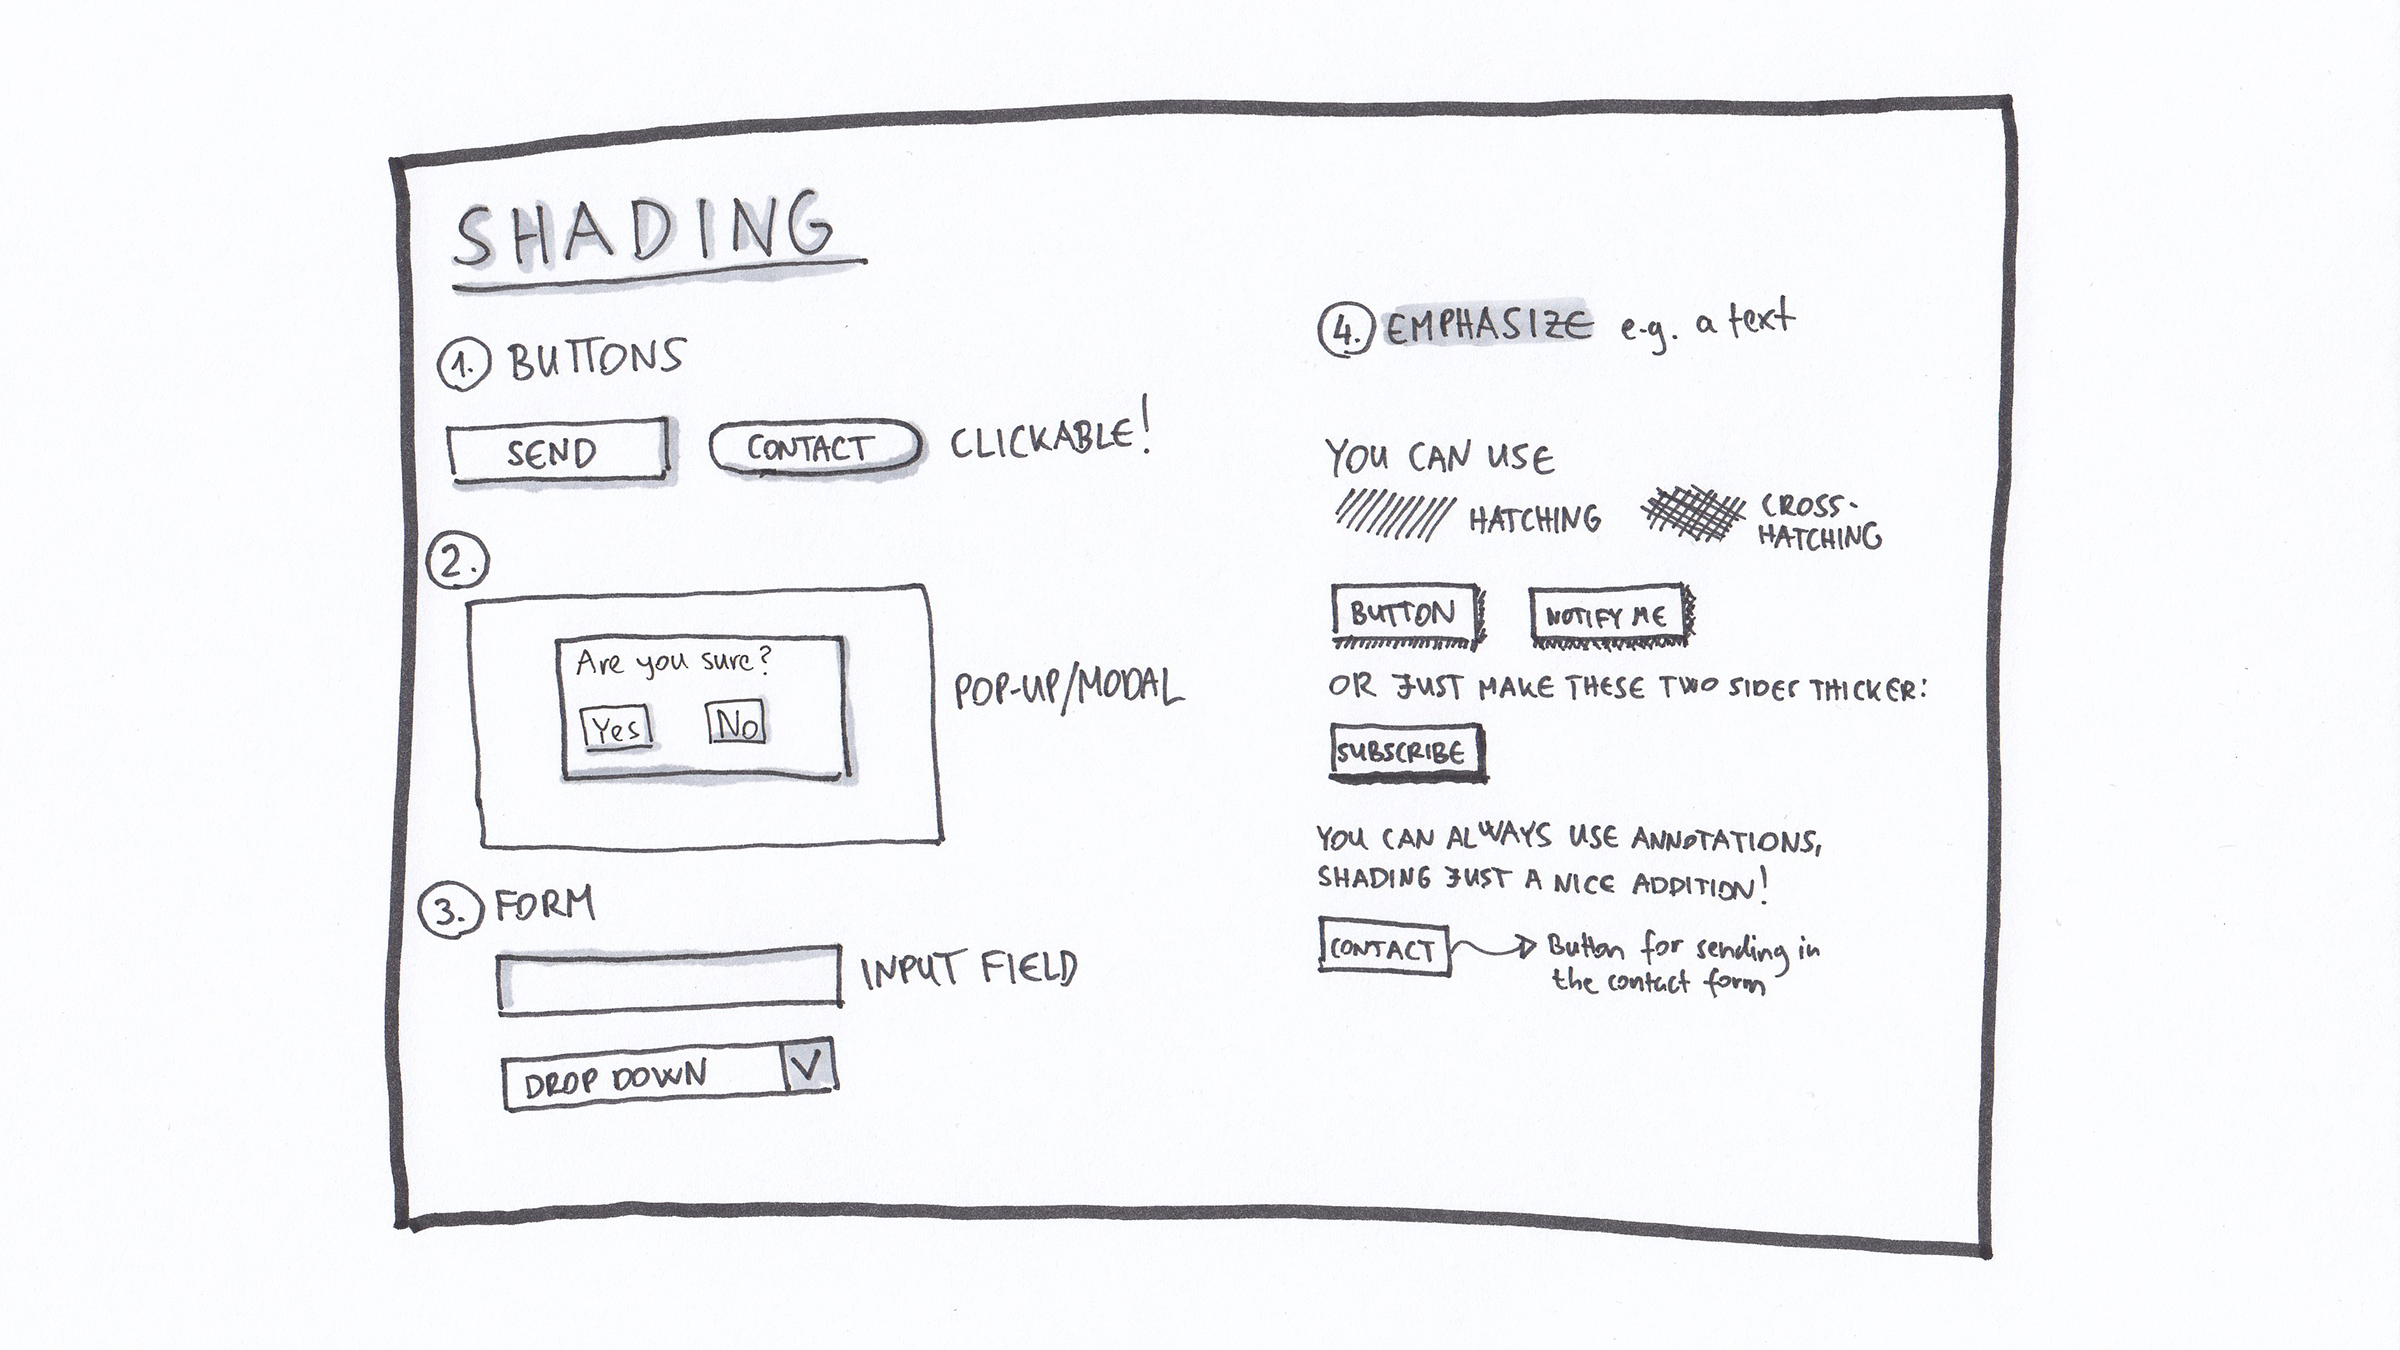 SHADING
1. BUTTONS
SEND
CONTACT
CLICKABLE!
2.
Are you sure?
Yes
No
POP-UP/MODAL
3. FORM
INPUT FIELD
DROP DOWN
V
4. EMPHASIZE e.g. a text
YOU CAN USE
HATCHING
CROSS-
HATCHING
BUTTON
NOTIFY ME
OR JUST MAKE THESE TWO SIDES THICKER:
SUBSCRIBE
YOU CAN ALWAYS USE ANNOTATIONS,
SHADING JUST A NICE ADDITION!
CONTACT
Button for sending in
the contact form